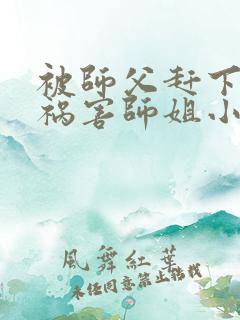 被師父赶下
祸害師姐小
風舞紅葉
未经同意禁止转载